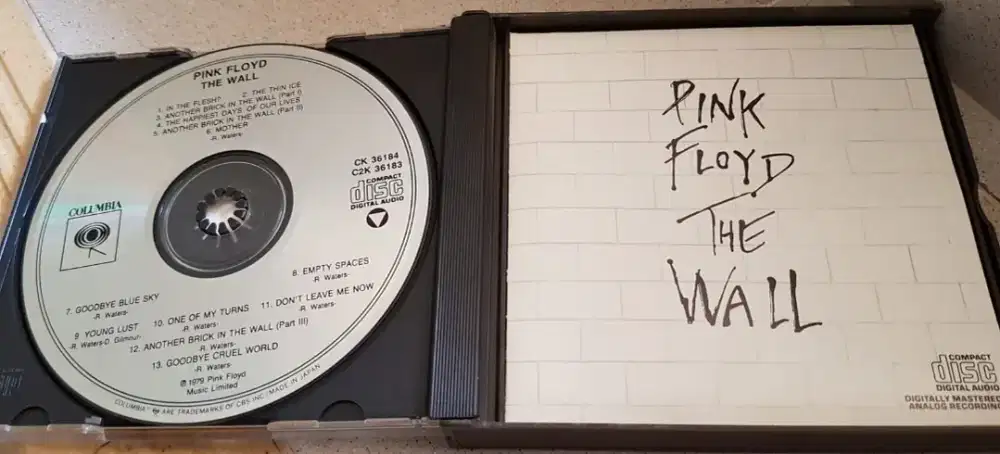 PINK FLOYD
THE WALL
1. IN THE FLESH? 2. THE THIN ICE
3. ANOTHER BRICK IN THE WALL (Part I)
4. THE HAPPIEST DAYS OF OUR LIVES
5. ANOTHER BRICK IN THE WALL (Part II)
6. MOTHER
-R. Waters-
CK 36184
C2K 36183
COMPACT
disc
DIGITAL AUDIO
COLUMBIA
8. EMPTY SPACES
-R. Waters-
7. GOODBYE BLUE SKY
-R. Waters-
9. YOUNG LUST 10. ONE OF MY TURNS 11. DON'T LEAVE ME NOW
-R. Waters-D. Gilmour- -R. Waters- -R. Waters-
12. ANOTHER BRICK IN THE WALL (Part III)
-R. Waters-
13. GOODBYE CRUEL WORLD
-R. Waters-
℗ 1979 Pink Floyd
Music Limited
COLUMBIA ARE TRADEMARKS OF CBS INC./MADE IN JAPAN
PINK
FLOYD
THE
WALL
COMPACT
disc
DIGITAL AUDIO
DIGITALLY MASTERED
ANALOG RECORDING